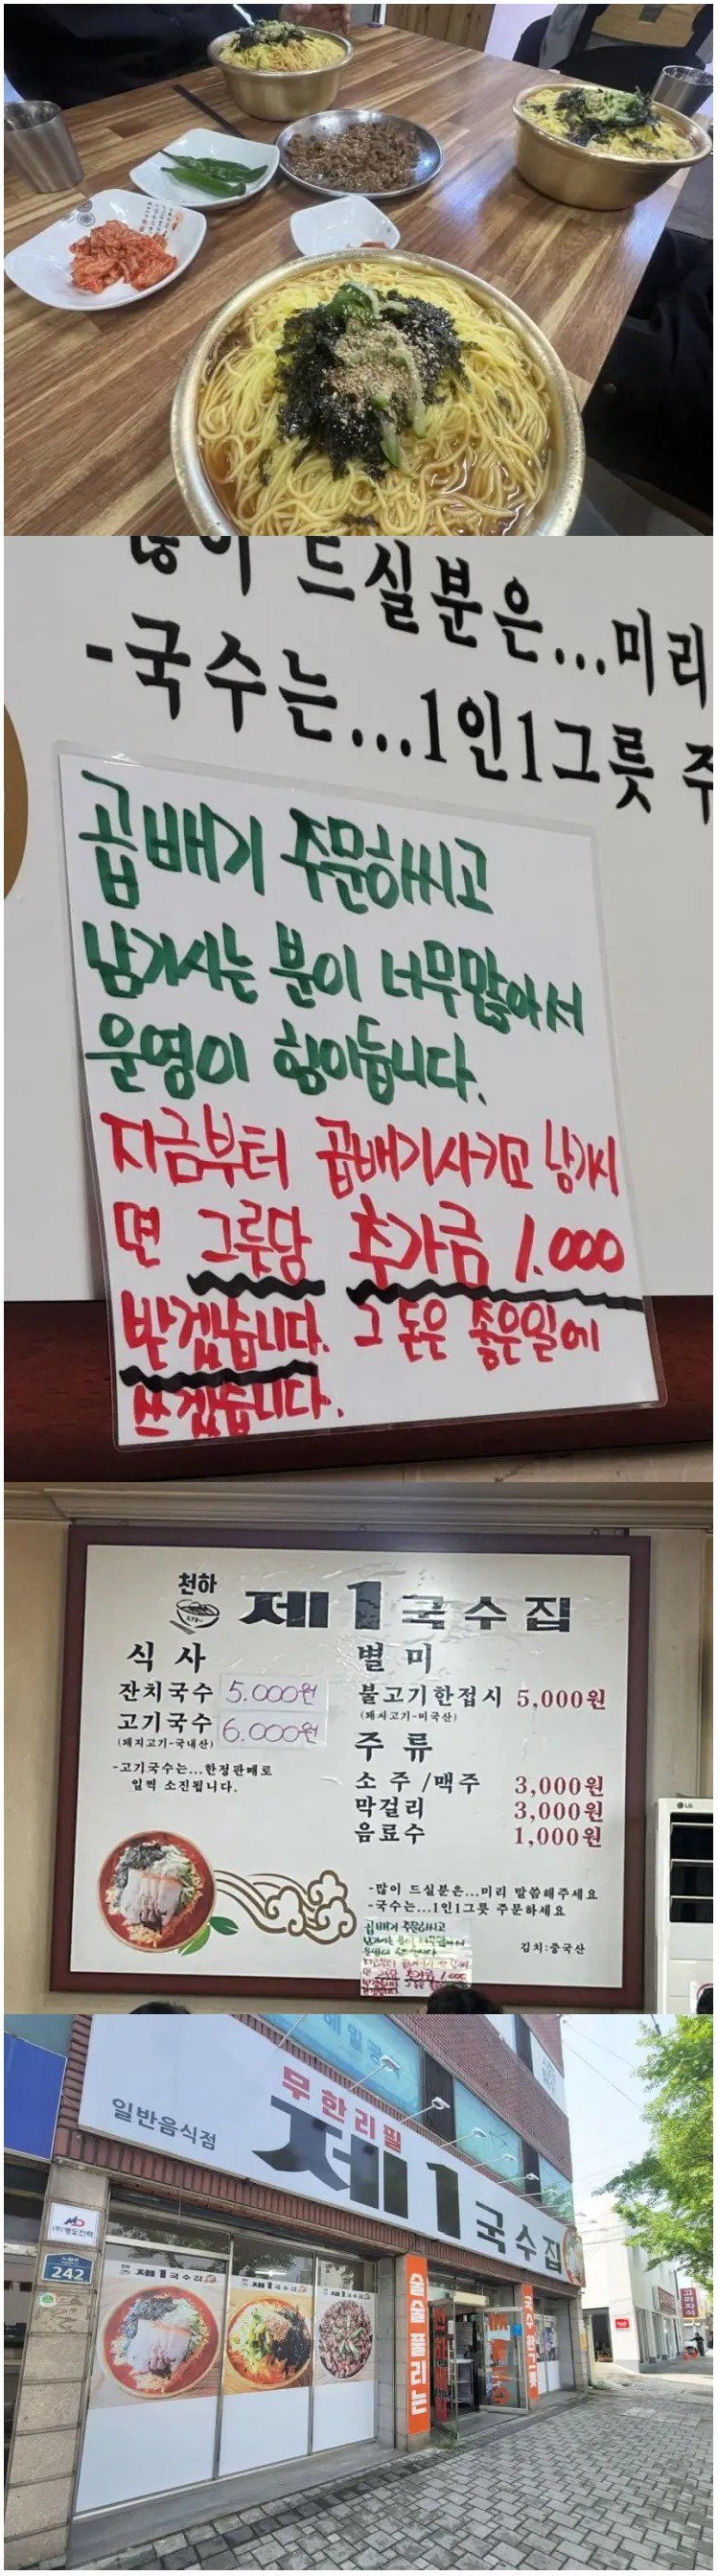 많이 드실분은...미리
-국수는...1인1그릇 주
곱배기 주문하씨고
남기시는 분이 너무많아서
운영이 힘이듭니다.
지금부터 곱배기시키고 남기시
면 그릇담 추가금 1.000
받겠습니다. 그 돈은 좋은일에
쓰겠습니다.
천하
제1국수집
식 사
잔치국수 5.000원
고기국수 6.000원
(돼지고기-국내산)
-고기국수는...한정판매로
일찍 소진됩니다.
별 미
불고기한접시 5,000원
(돼지고기-미국산)
주 류
소 주 /맥주 3,000원
막걸리 3,000원
음료수 1,000원
-많이 드실분은...미리 말씀해주세요
-국수는...1인1그릇 주문하세요
곱배기 주문하씨고
남기시는 분이 너무많아서
운영이 힘이듭니다.
지금부터 곱배기시키고 남기시
면 그릇담 추가금 1.000
김치:중국산
LG
무한리필
일반음식점
제1국수집
(주)명도전력
242
제1국수집
제1국수집
제1국수집
술술 풀리는
국수 한그릇